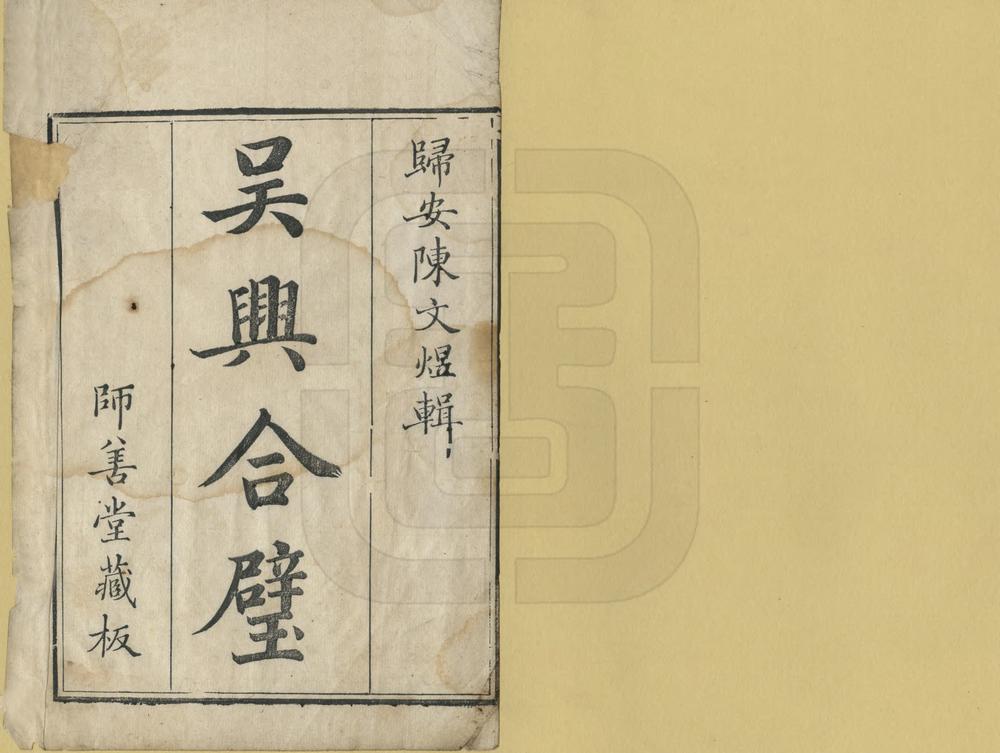 歸安陳文煜輯
吴興合璧
師善堂藏板